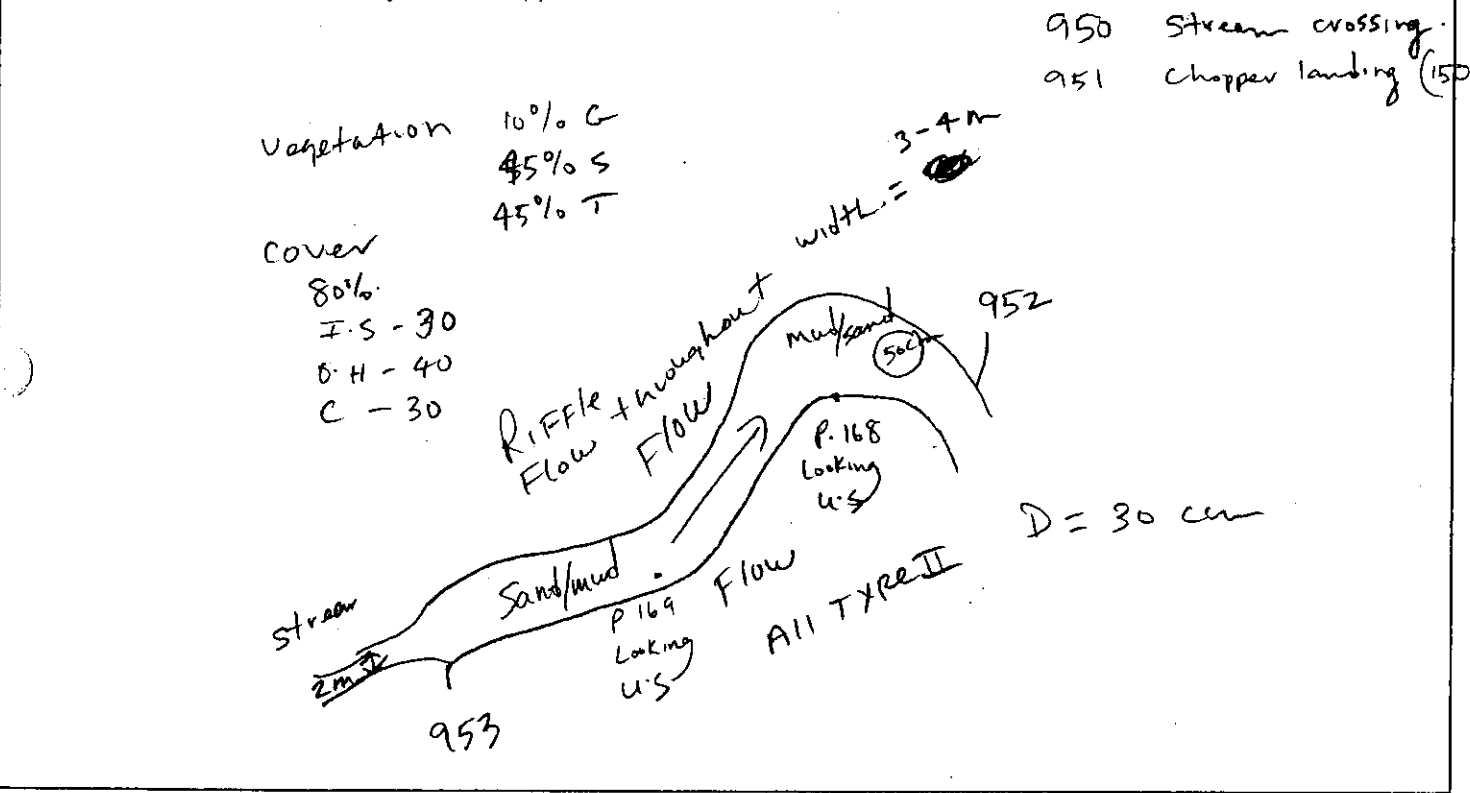 950 Stream crossing.
951 Chopper landing (150
Vegetation 10% G
45% S
45% T
Cover
80%.
I.S - 30
O.H - 40
C - 30
width. = 3-4 m
RIFFLE
Flow throughout
Flow
mud/sand
50cm
952
P. 168
Looking
U.S
D = 30 cm
Sand/mud
P 169
Looking
U.S
Flow
All TYPE II
stream
2m
953